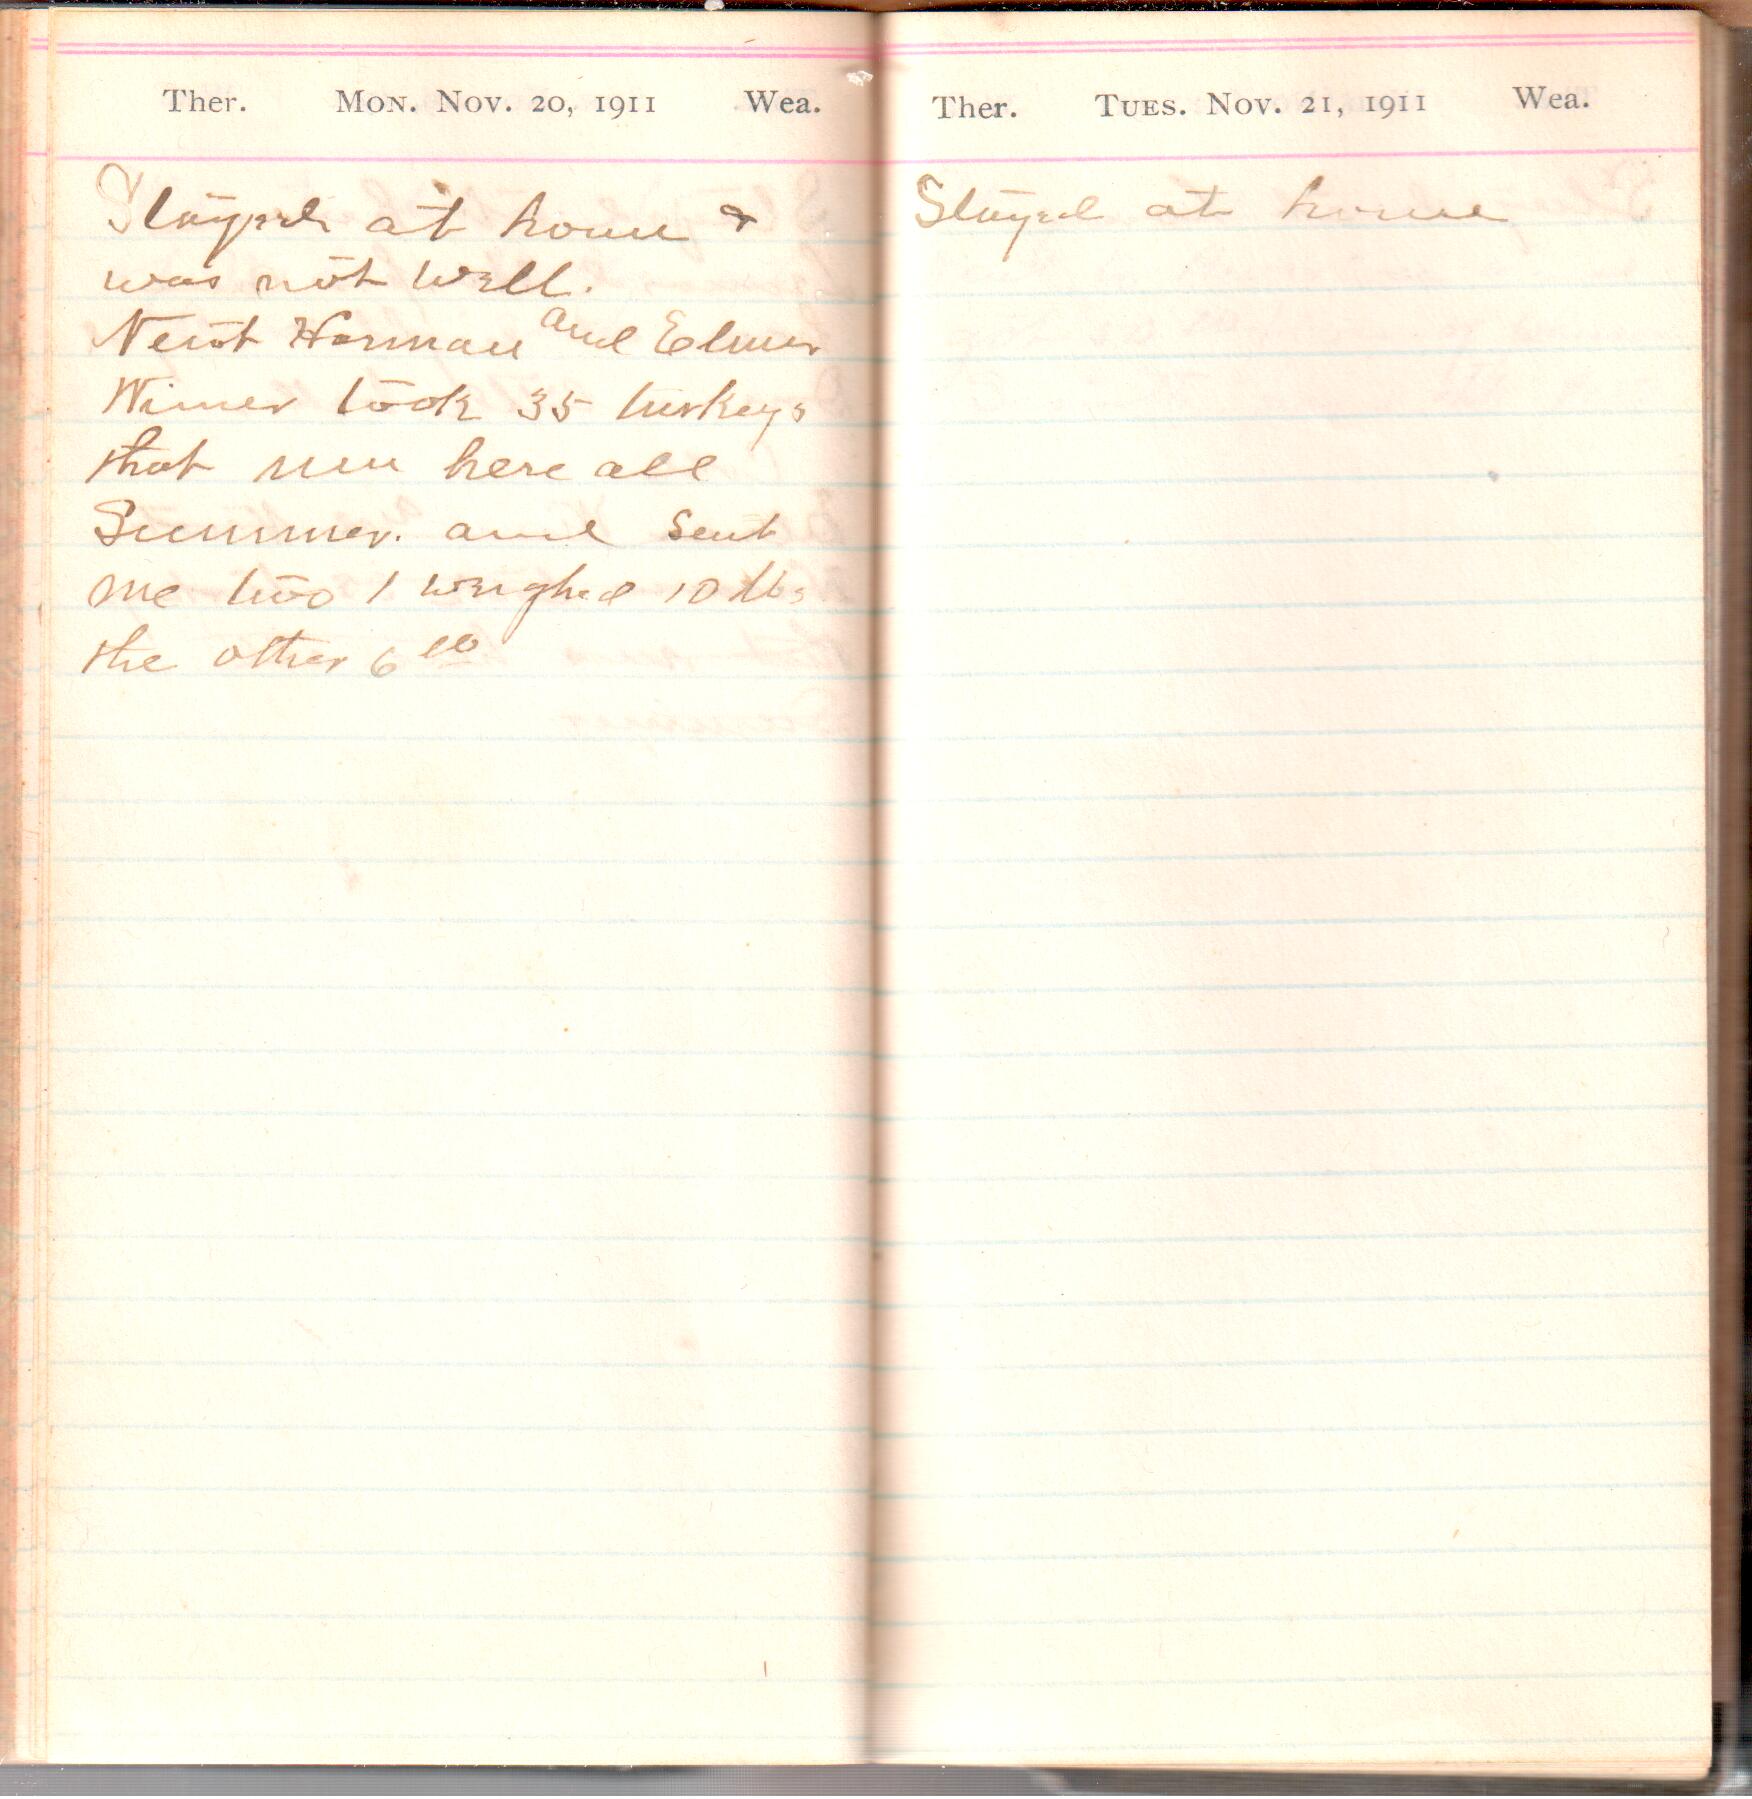 Ther. Mon. Nov. 20, 1911 Wea.
Stayed at home &
was not well.
Newt Harman and Elmer
Wimer took 35 turkeys
that run here all
Summer. and sent
me two 1 weighed 10 lbs
the other 6
Ther. Tues. Nov. 21, 1911 Wea.
Stayed at home